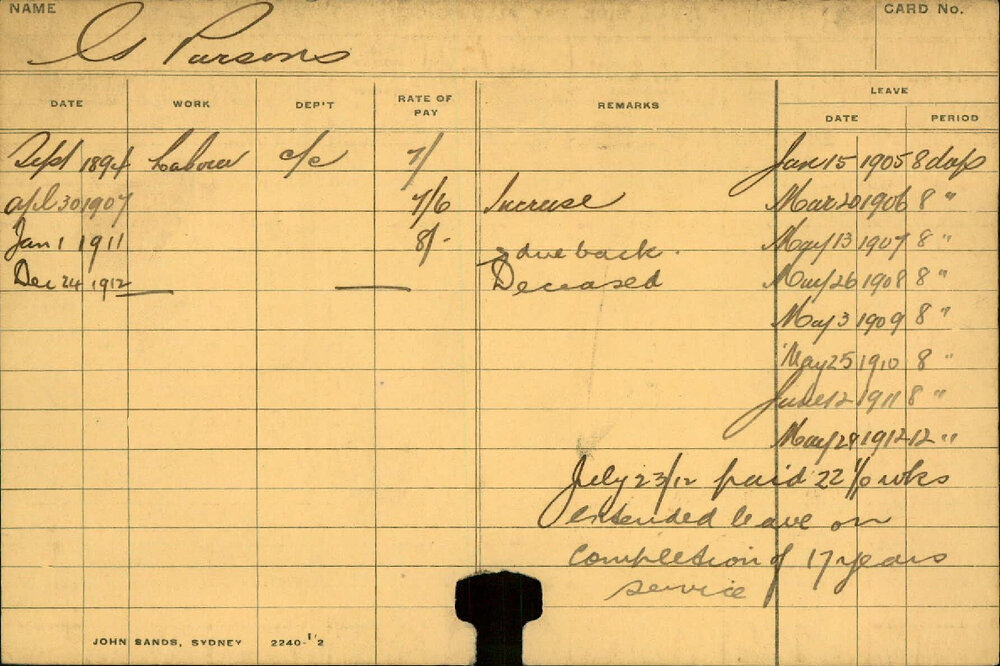 NAME CARD No.
G Parsons
DATE WORK DEP'T RATE OF PAY REMARKS LEAVE
DATE PERIOD
Sept 1894 Labour c/c 7/ Jan 15 1905 8 days
Apl 30 1907 7/6 Increase Mar 20 1906 8 "
Jan 1 1911 8/- May 13 1907 8 "
due back.
Dec 24 1912 — — Deceased May 26 1908 8 "
May 3 1909 8 "
May 25 1910 8 "
June 12 1911 8 "
May 29 1912 12 "
July 23/12 paid 22 wks
extended leave on
completion of 17 years
service
JOHN SANDS, SYDNEY 2240-1'2